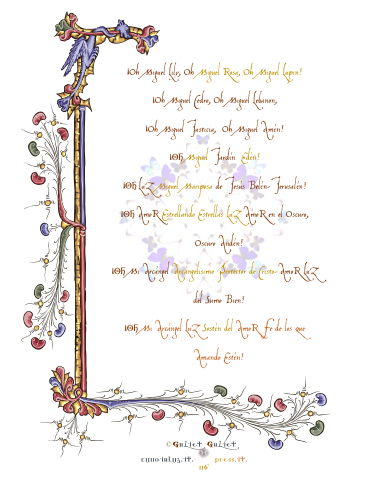 ¡Oh Miguel Lily, Oh Miguel Rosa, Oh Miguel Lupin!
¡Oh Miguel Cedro, Oh Miguel Lebanon,
¡Oh Miguel Justicia, Oh Miguel Amén!
¡Oh Miguel Jardín Edén!
¡Oh LuZ Miguel Mariposa de Jesús Belén Jerusalén!
¡Oh AmoR Estrellando Estrellas LuZ AmoR en el Oscuro,
Oscuro Andén!
¡Oh Mi Arcángel Arcangelísimo Protector de Cristo AmoR LuZ
del Sumo Bien!
¡Oh Mi Arcángel LuZ Sostén del AmoR Fe de los que
Amando Estén!
© Guliet Guliet
press.It.
116